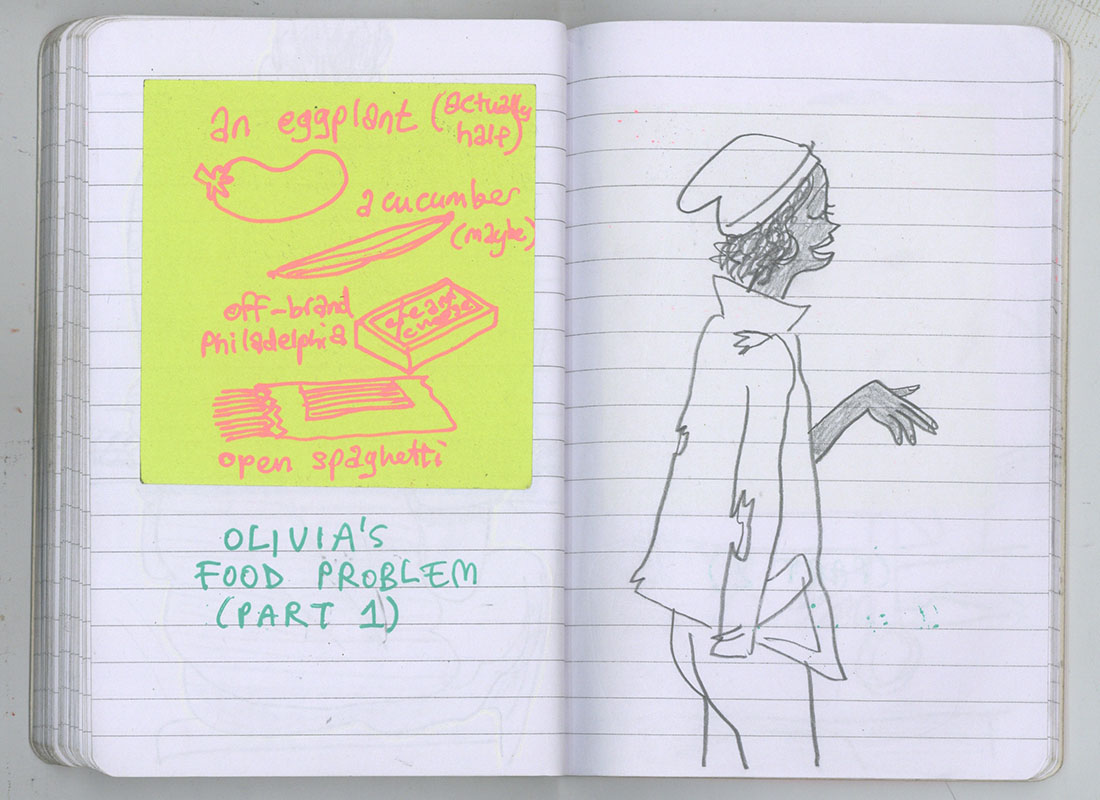 an eggplant (actually
half)
a cucumber
(maybe)
off-brand
Philadelphia
cream
cheese
open spaghetti
OLIVIA'S
FOOD PROBLEM
(PART 1)